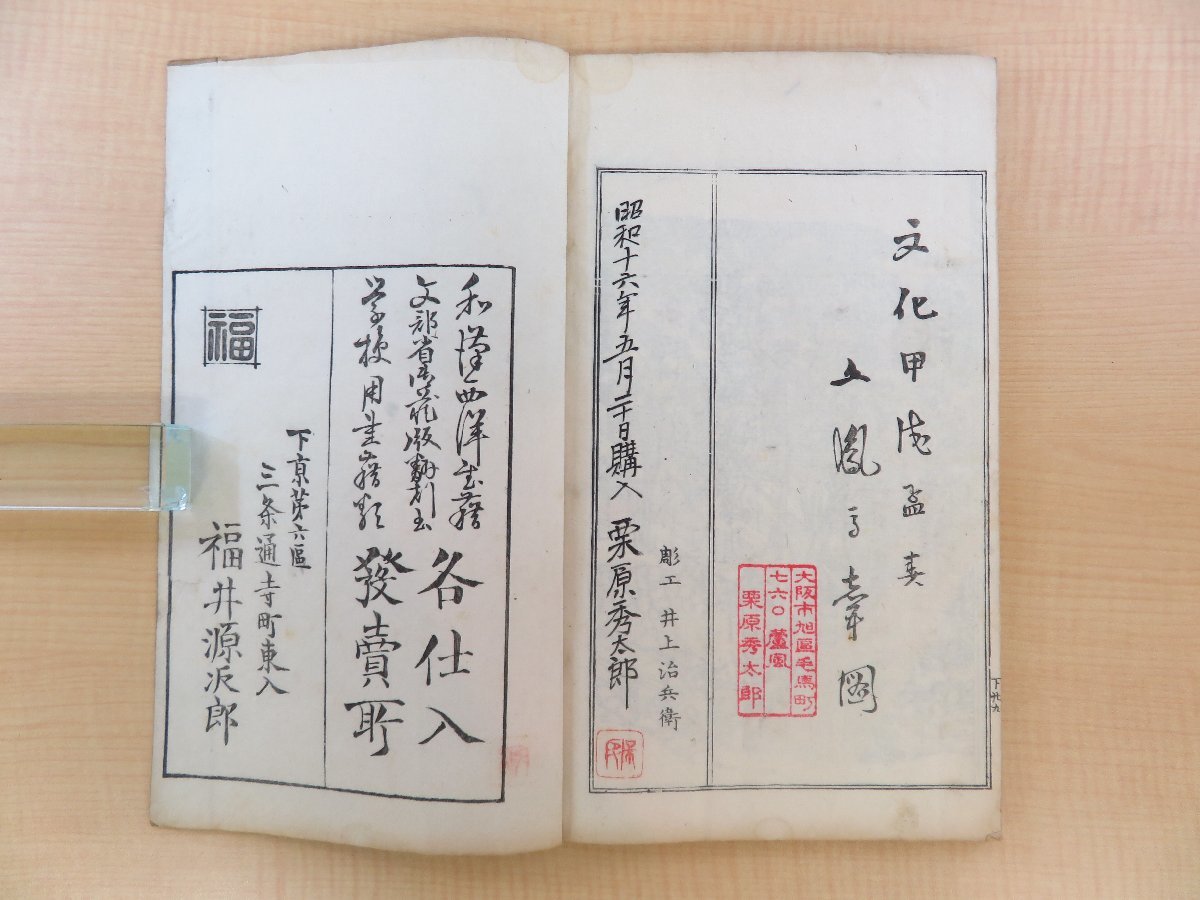 文化甲戌孟春
上鳳
大阪市旭區毛馬町
七六〇 蘆風
栗原秀太郎
彫工 井上治兵衛
昭和十六年五月二十日購入 栗原秀太郎
下廿九
和漢西洋書籍
文部省御蔵版翻刻書
学校用書籍類
各仕入
發賣所
下京第六區
三条通寺町東入
福井源次郎
福